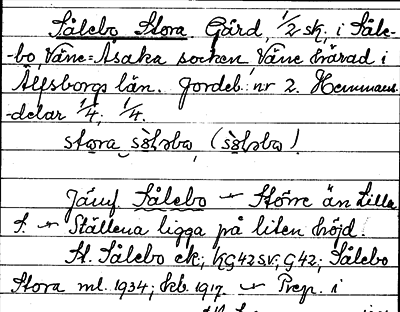 Sålebo Stora Gård, 1/2 sk, i Såle-
-bo, Väne-Åsaka socken, Väne härad i
Älfsborgs län. Jordeb. nr 2. Hemmans-
-delar 1/4; 1/4.
stora sòləbo, (sòləbo)
Jämf. Sålebo — Större än Lilla
S. — Ställena ligga på liten höjd.
St. Sålebo ek; KG42SV; G42; Sålebo
Stora ml. 1934; hkb. 1917. — Prep. i